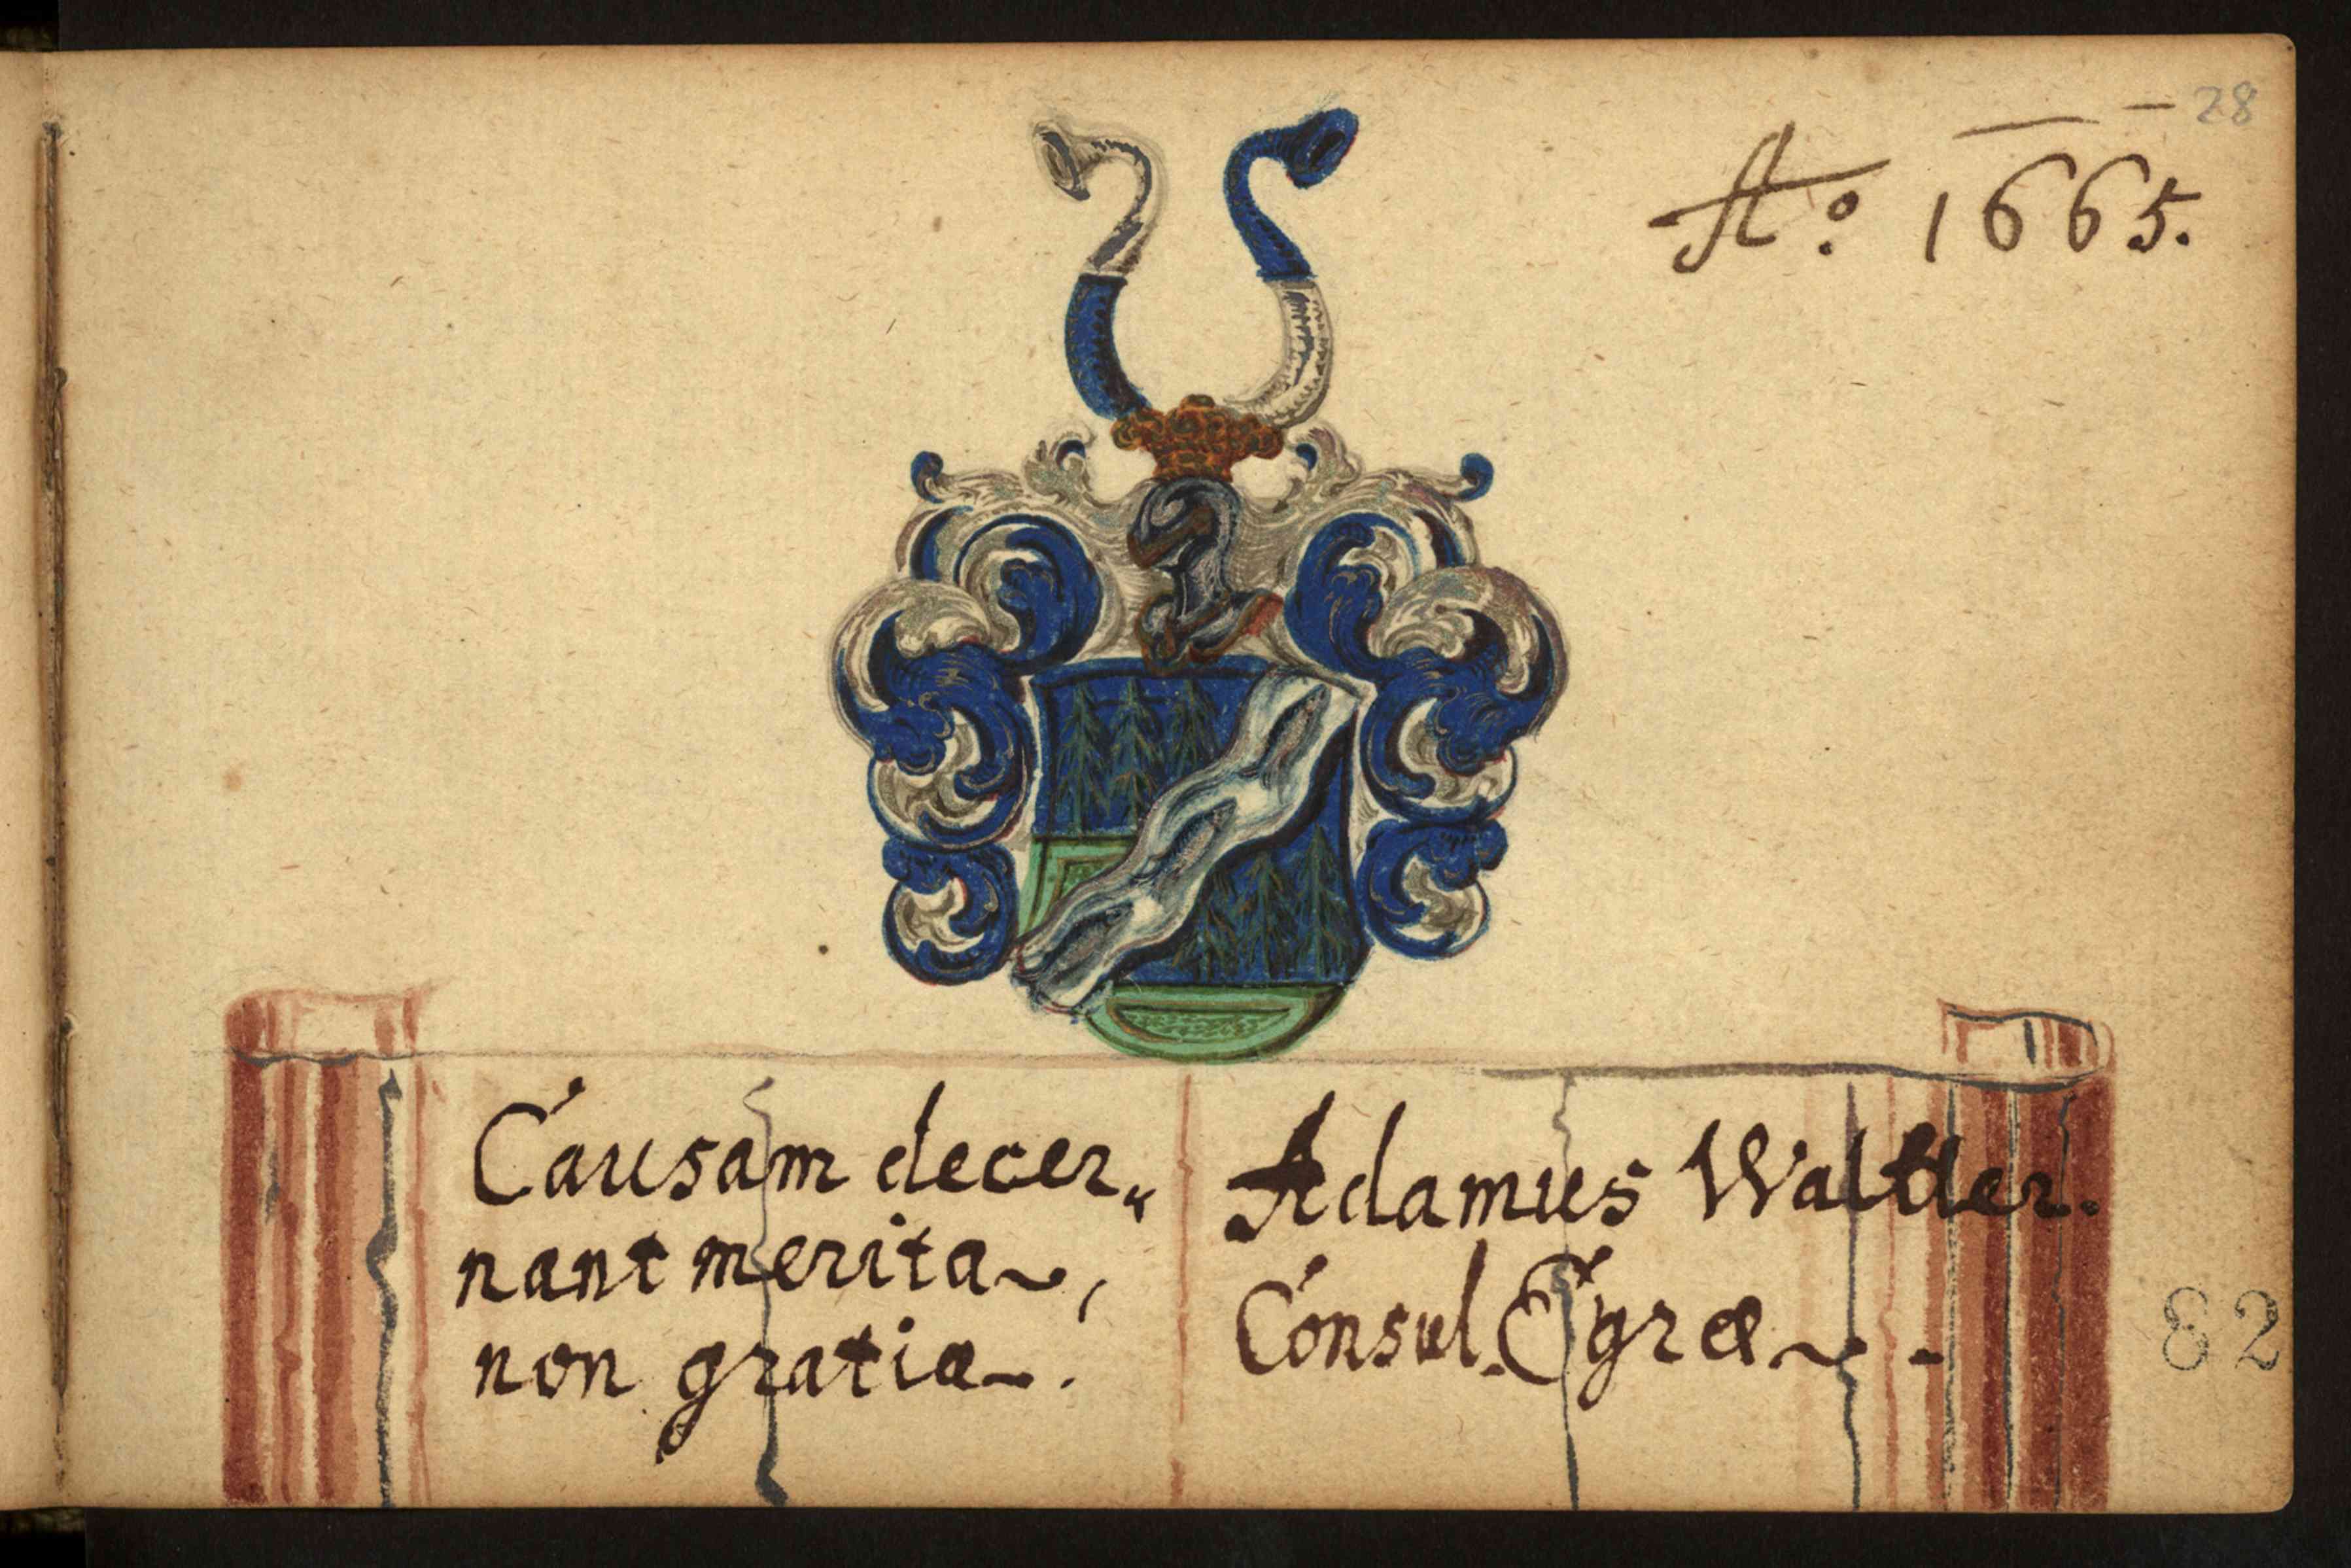 28
Aº. 1665.
Causam decer„
nant merita,
non gratia.
Adamus Waltter.
Consul. Egræ.
82